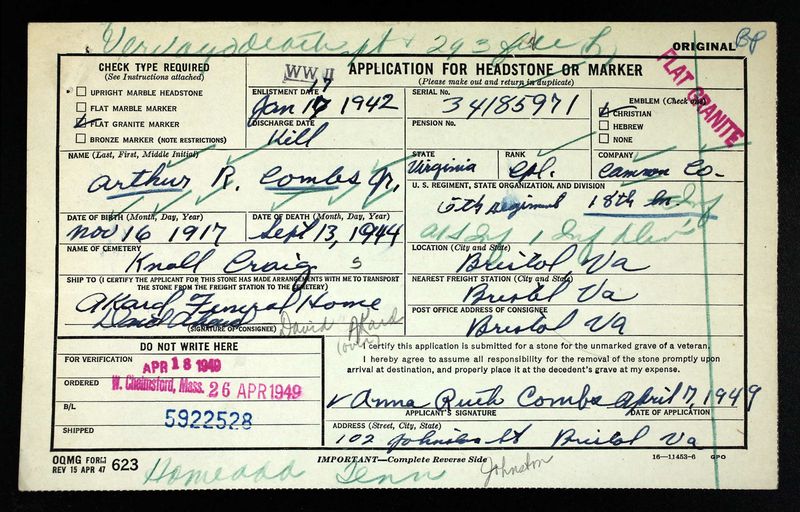 ORIGINAL
WW II
CHECK TYPE REQUIRED
(See Instructions attached)
UPRIGHT MARBLE HEADSTONE
FLAT MARBLE MARKER
FLAT GRANITE MARKER
BRONZE MARKER (NOTE RESTRICTIONS)
APPLICATION FOR HEADSTONE OR MARKER
(Please make out and return in duplicate)
FLAT GRANITE
ENLISTMENT DATE
Jan 17 1942
DISCHARGE DATE
Kill
SERIAL No.
34185971
PENSION No.
EMBLEM (Check one)
CHRISTIAN
HEBREW
NONE
NAME (Last, First, Middle Initial)
Arthur R. Combs Jr.
STATE
Virginia
RANK
Cpl.
COMPANY
Cannon Co.
U. S. REGIMENT, STATE ORGANIZATION, AND DIVISION
Regiment 18th Inf
DATE OF BIRTH (Month, Day, Year)
Nov 16 1917
DATE OF DEATH (Month, Day, Year)
Sept 13, 1944
NAME OF CEMETERY
Knoll Craig s
LOCATION (City and State)
Bristol Va
SHIP TO (I CERTIFY THE APPLICANT FOR THIS STONE HAS MADE ARRANGEMENTS WITH ME TO TRANSPORT
THE STONE FROM THE FREIGHT STATION TO THE CEMETERY)
Akard Funeral Home
David Akard
(SIGNATURE OF CONSIGNEE)
David Akard
(over)
NEAREST FREIGHT STATION (City and State)
Bristol Va
POST OFFICE ADDRESS OF CONSIGNEE
Bristol Va
DO NOT WRITE HERE
FOR VERIFICATION
APR 18 1949
ORDERED
W. Chelmsford, Mass. 26 APR 1949
B/L
5922528
SHIPPED
I certify this application is submitted for a stone for the unmarked grave of a veteran.
I hereby agree to assume all responsibility for the removal of the stone promptly upon
arrival at destination, and properly place it at the decedent's grave at my expense.
Anna Ruth Combs April 7, 1949
APPLICANT'S SIGNATURE DATE OF APPLICATION
ADDRESS (Street, City, State)
102 Johnston St Bristol Va
OQMG FORM 623
REV 15 APR 47
IMPORTANT—Complete Reverse Side
16—11453-6 GPO
Tenn
Johnston